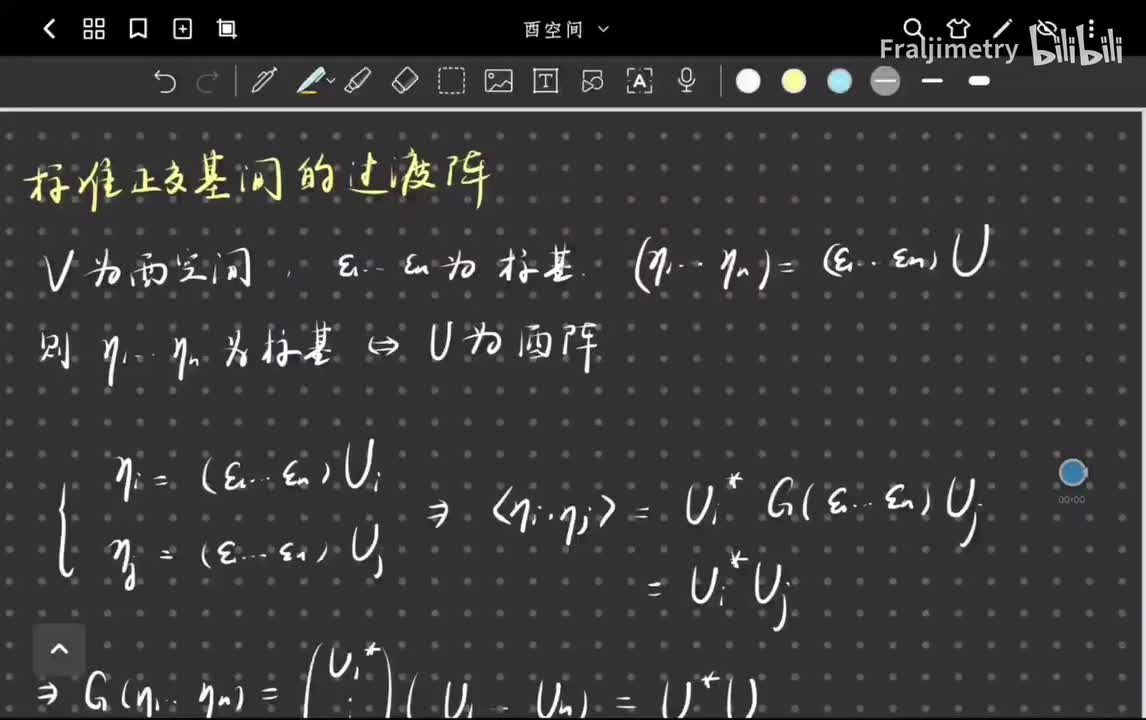 酉空间
Fraljimetry bilibili
T
A
标准正交基间的过渡阵
V为酉空间, ε₁… εₙ为标基. (η₁… ηₙ)= (ε₁… εₙ) U
则 η₁… ηₙ为标基 ⇔ U为酉阵
ηᵢ = (ε₁… εₙ) Uᵢ
ηⱼ = (ε₁… εₙ) Uⱼ
⇒ <ηᵢ,ηⱼ> = Uᵢ* G(ε₁… εₙ) Uⱼ
= Uᵢ* Uⱼ
00:00
⇒ G(η₁… ηₙ) = (U₁* ⋮ )( U₁ … Uₙ = U*U